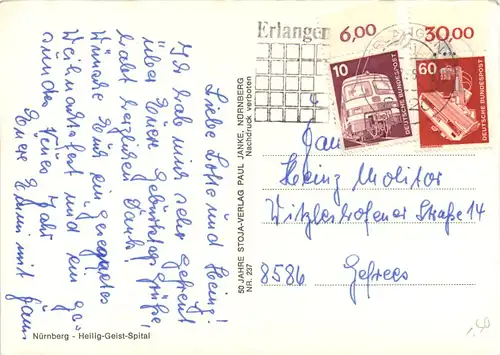 Liebe Lotte und Heinz!
Ich hab mich sehr gefreut
über Eure Geburtstagsgrüße,
habt herzlichen Dank.
Wünsche Euch ein gesegnetes
Weihnachtsfest und ein ge-
sundes Neues Jahr
Eure Emmi mit Hans
Nürnberg - Heilig-Geist-Spital
50 JAHRE STOJA-VERLAG PAUL JANKE, NÜRNBERG
NR. 237 Nachdruck verboten
Erlangen
6,00
30,00
10
DEUTSCHE BUNDESPOST
60
DEUTSCHE BUNDESPOST
Fam
Heinz Molitor
Witzleshofener Straße 14
8586 Gefrees